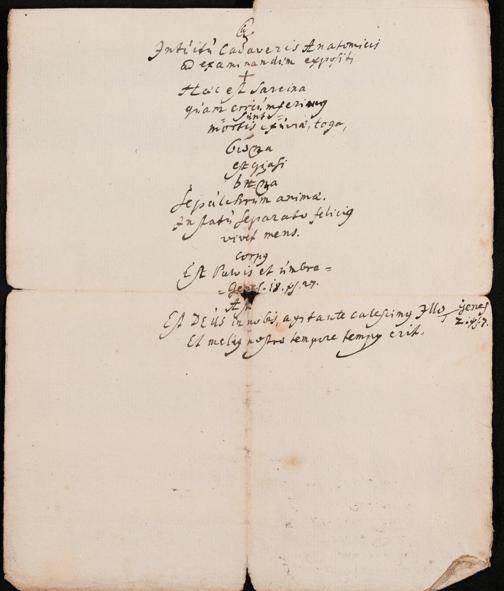 Intuitu Cadaveris Anatomicis
ad examinandum expositi
†
Hæc est sarcina
quam circumferimus
sunt
mortis exuviæ, toga,
σῶμα
est quasi
σῆμα
sepulchrum animæ.
In statu separato felicius
vivet mens.
corpus
Est Pulvis et umbra
Genes. 18. vs. 27.
Ast
Est DEus in nobis, agitante calescimus Illo Genes
2. vs. 7.
Et melius nostro tempore tempus erit.